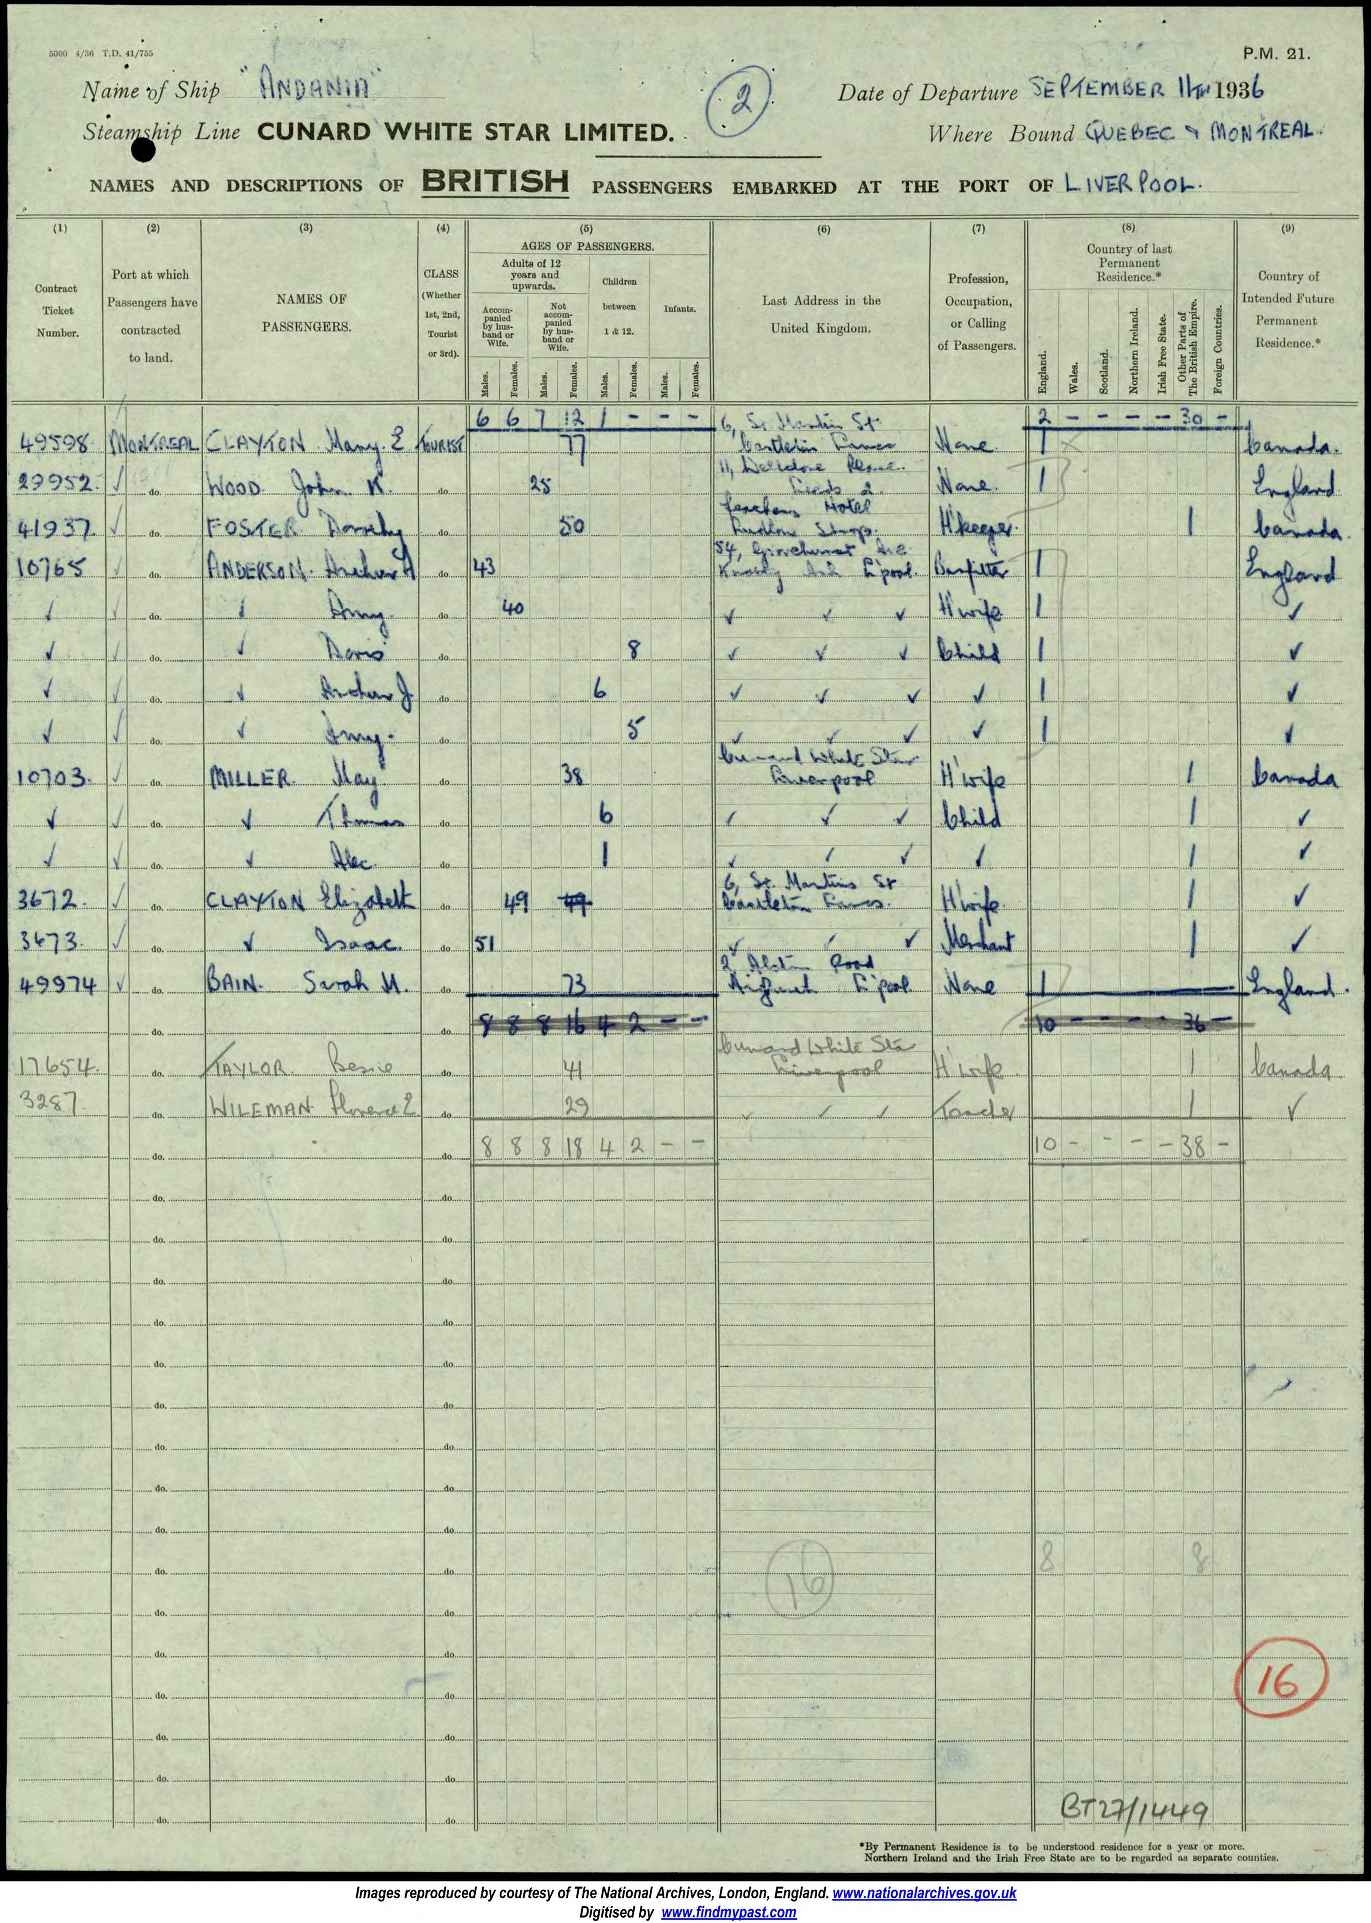 5000 4/36 T.D. 41/755
P.M. 21.
Name of Ship "ANDANIA"
2
Date of Departure SEPTEMBER 11TH 1936
Steamship Line CUNARD WHITE STAR LIMITED.
Where Bound QUEBEC & MONTREAL.
NAMES AND DESCRIPTIONS OF BRITISH PASSENGERS EMBARKED AT THE PORT OF LIVERPOOL.
(1) (2) (3) (4) (5) (6) (7) (8) (9)
Contract Ticket Number.
Port at which Passengers have contracted to land.
NAMES OF PASSENGERS.
CLASS (Whether 1st, 2nd, Tourist or 3rd).
AGES OF PASSENGERS.
Adults of 12 years and upwards.
Accompanied by husband or Wife.
Not accompanied by husband or Wife.
Children between 1 & 12.
Infants.
Males. Females. Males. Females. Males. Females. Males. Females.
Last Address in the United Kingdom.
Profession, Occupation, or Calling of Passengers.
Country of last Permanent Residence.*
England. Wales. Scotland. Northern Ireland. Irish Free State. Other Parts of The British Empire. Foreign Countries.
Country of Intended Future Permanent Residence.*
6 6 7 12 1 - - - 2 - - - - 30 -
49598 MONTREAL CLAYTON Mary. E TOURIST 77 6, St Martins St Castleton Lancs None 1 x Canada.
29952. ✓ do. WOOD. John K. do 25 11, Place. Leeds 2. None. 1 England
41937. ✓ do. FOSTER Dorothy do 50 Hotel Ludlow Shrop. H'keeper. 1 Canada.
10765 ✓ do. ANDERSON. Archer A do 43 54, Ave Knotty Ash L'pool. 1 England
✓ ✓ do. ✓ Amy. do 40 ✓ ✓ ✓ H'wife 1 ✓
✓ ✓ do. ✓ Doris do 8 ✓ ✓ ✓ Child 1 ✓
✓ ✓ do. ✓ Archer J do 6 ✓ ✓ ✓ ✓ 1 ✓
✓ ✓ do. ✓ Amy. do 5 ✓ ✓ ✓ ✓ 1 ✓
10703. ✓ do. MILLER. May do 38 Cunard White Star Liverpool H'wife 1 Canada
✓ ✓ do. ✓ Thomas do 6 ✓ ✓ ✓ Child 1 ✓
✓ ✓ do. ✓ Alec. do 1 ✓ ✓ ✓ ✓ 1 ✓
3672. ✓ do. CLAYTON Elizabeth do 49 49 6, St. Martins St Castleton Lancs. H'wife 1 ✓
3673. ✓ do. ✓ Isaac. do 51 ✓ ✓ ✓ Merchant 1 ✓
49974 ✓ do. BAIN. Sarah M. do 73 2 Road Aigburth L'pool. None 1 England.
do. do 8 8 8 16 4 2 - - 10 - - - - 36 -
17654. do. TAYLOR. Bessie do 41 Cunard White Star Liverpool H'wife 1 Canada
3287. do. WILEMAN Florence E do 29 ✓ ✓ ✓ Teacher 1 ✓
do. do 8 8 8 18 4 2 - - 10 - - - - 38 -
do. do
do. do
do. do
do. do
do. do
do. do
do. do
do. do
do. do
do. do 8 8
16
do. do
do. do
do. do
16
do. do
do. do
do. do
BT27/1449
*By Permanent Residence is to be understood residence for a year or more.
Northern Ireland and the Irish Free State are to be regarded as separate counties.
Images reproduced by courtesy of The National Archives, London, England. www.nationalarchives.gov.uk
Digitised by www.findmypast.com